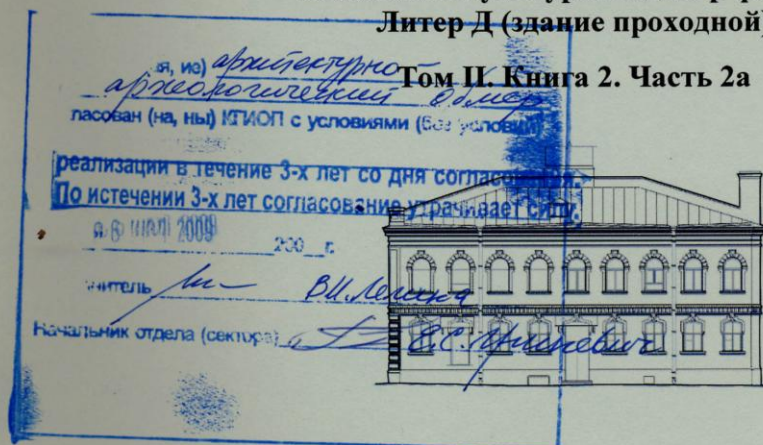 Литер Д (здание проходной)
Том II. Книга 2. Часть 2а
ая, ие) архитектурно
археологический обмер
ласован (на, ны) КГИОП с условиями (без условий)
реализации в течение 3-х лет со дня согласования.
По истечении 3-х лет согласование утрачивает силу.
2009
200 г.
нитель В.И.
Начальник отдела (сектора) Е.С.